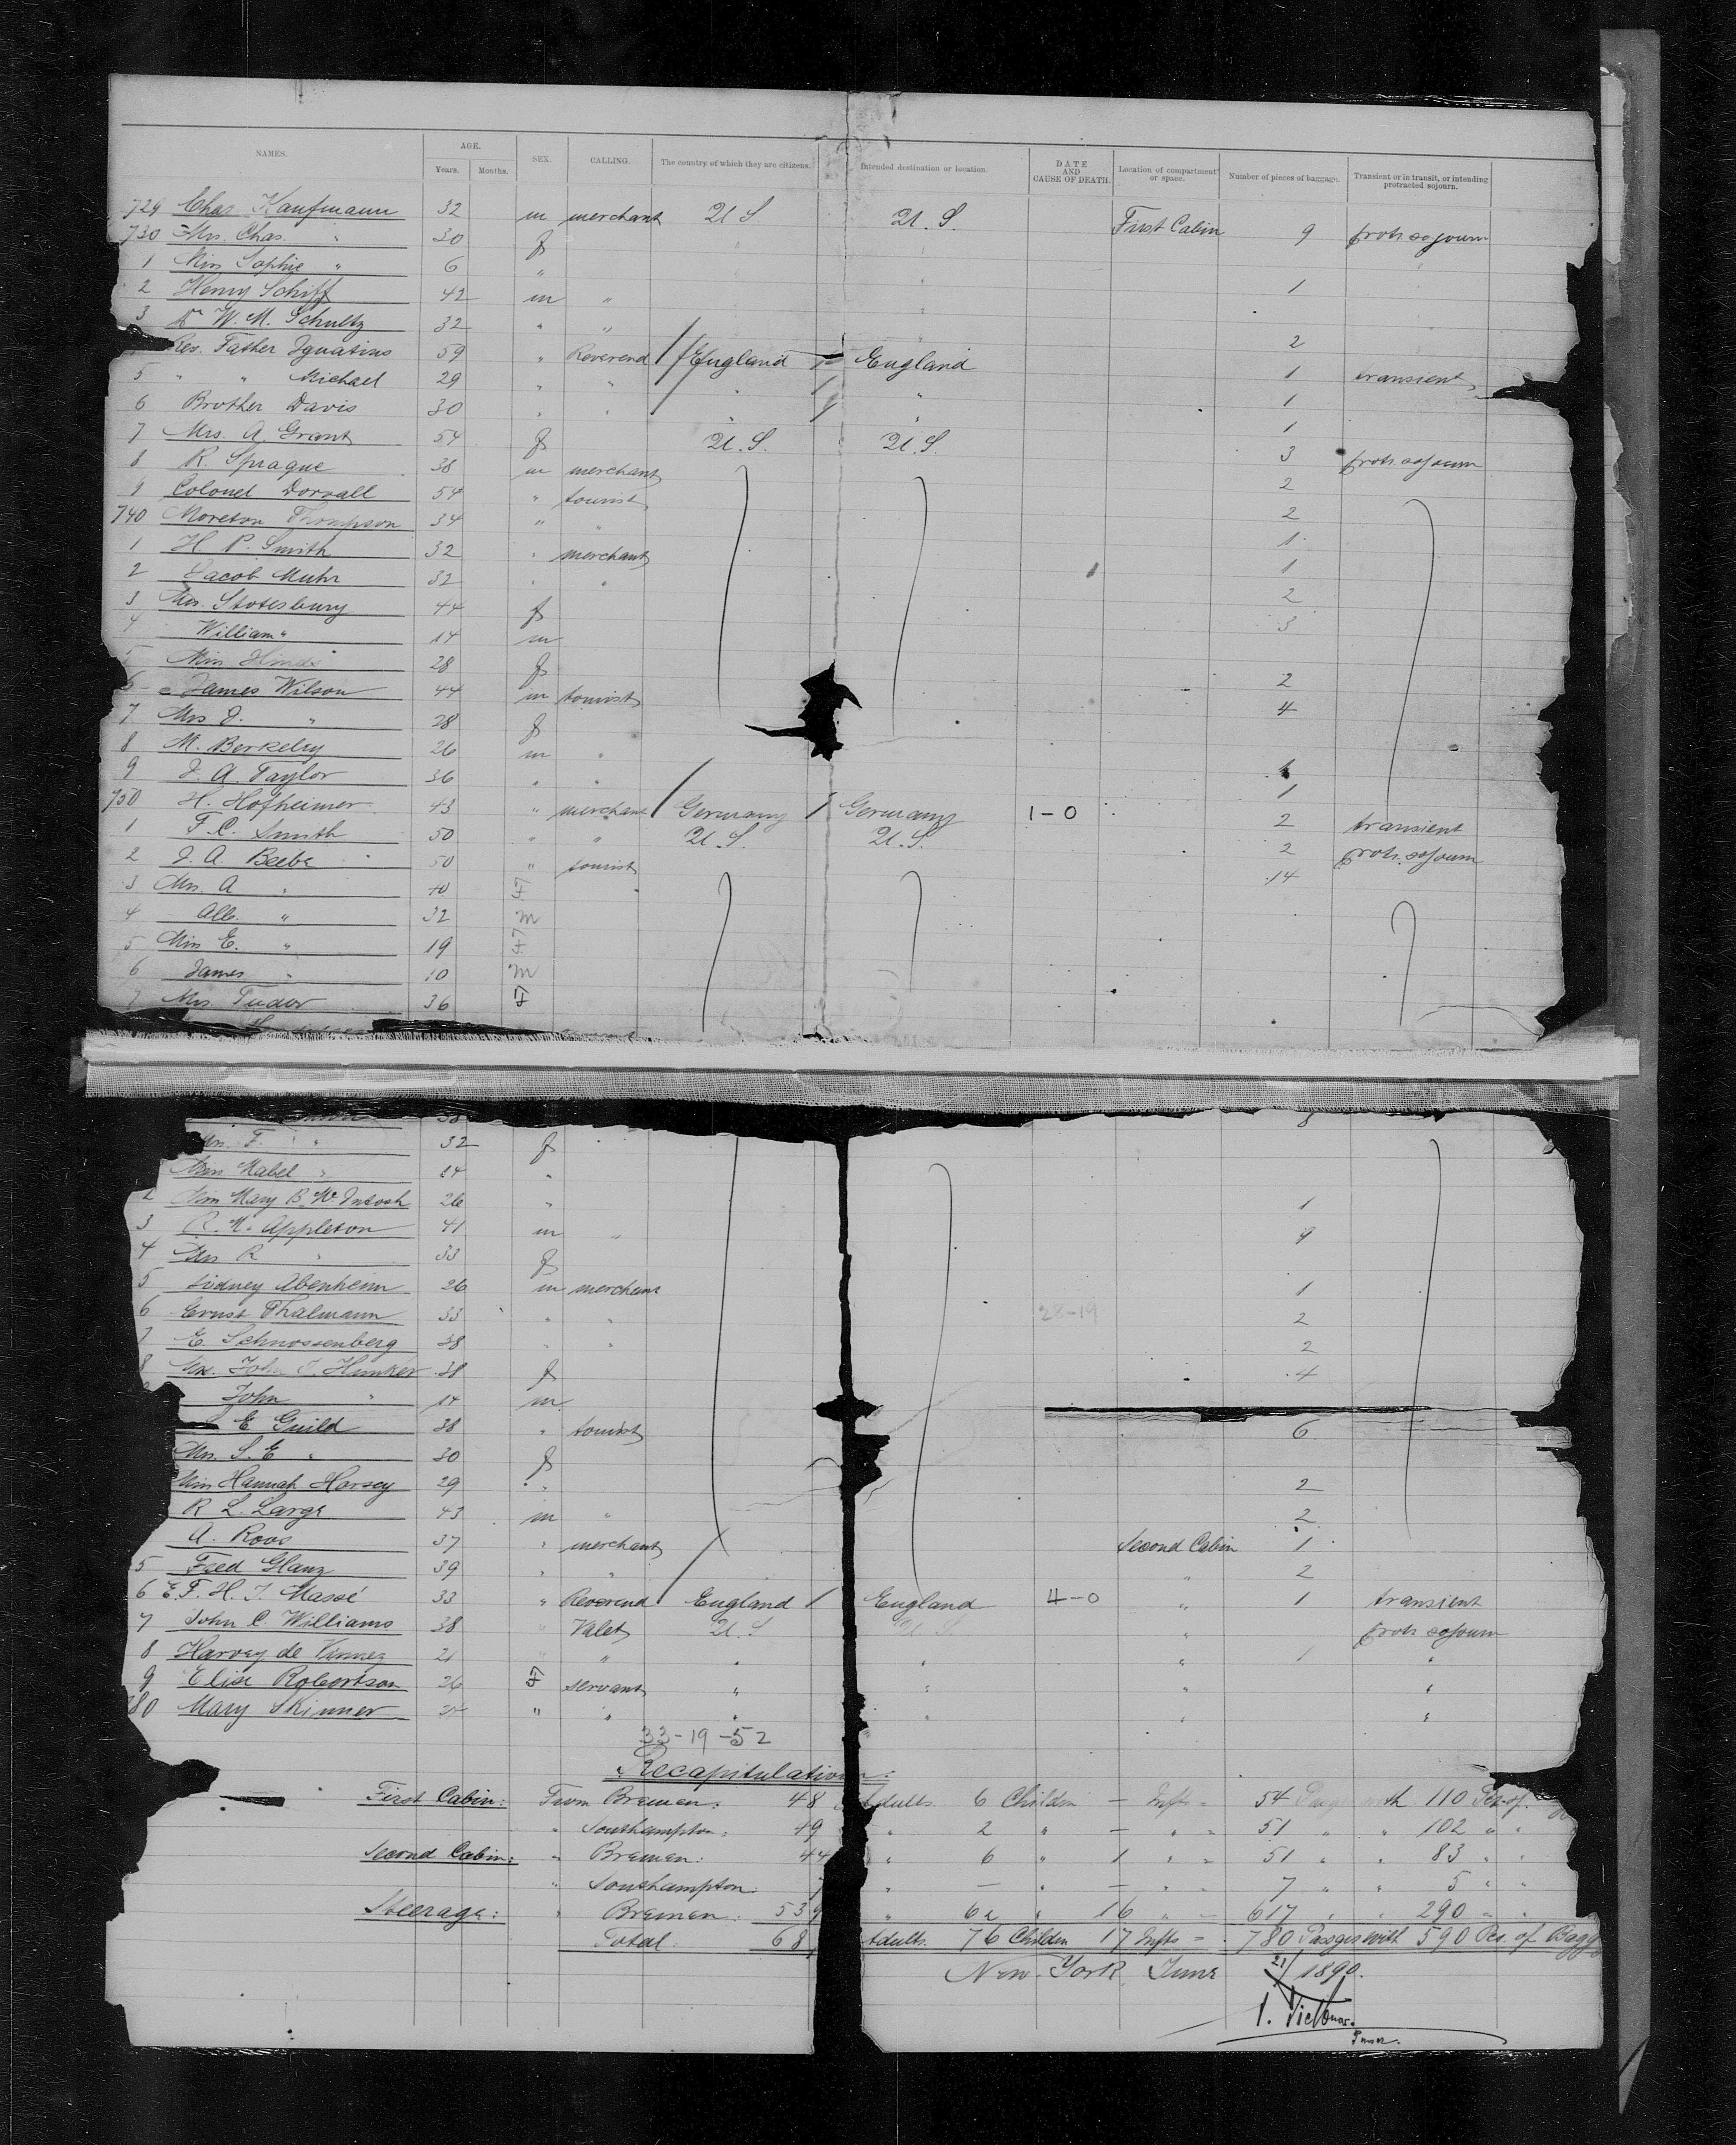 NAMES. AGE. Years. Months. SEX. CALLING. The country of which they are citizens. Intended destination or location. DATE AND CAUSE OF DEATH. Location of compartment or space. Number of pieces of baggage. Transient or in transit, or intending protracted sojourn.
729 Chas Kaufmann 32 m merchant U S U. S. First Cabin 9 protr sojourn
730 Mrs. Chas. " 30 f
1 Miss Sophie " 6 "
2 Henry Schiff 42 m " 1
3 Dr W. M. Schultz 32 " " 2
Rev. Father Ignatius 59 " Reverend England England 1 transient
5 " " Michael 29 " " " " 1
6 Brother Davis 30 " " " " 1
7 Mrs. A. Grant 54 f U. S. U. S. 3 protr sojourn
8 R. Sprague 38 m merchant 2
9 Colonel Dorvall 54 " tourist 2
740 Moreton Thompson 34 " " 1
1 H P. Smith 32 " merchant 1
2 Jacob Muhr 32 " " 2
3 Mrs. Stotesbury 44 f 3
4 William " 14 m
5 Miss Hinds 28 f 2
6 James Wilson 44 m tourist 4
7 Mrs J. " 28 f
8 M. Berkeley 26 m "
9 J. A. Taylor 36 " " 1
750 H. Hofheimer 43 " merchant Germany Germany 1-0 2 transient
1 F. C. Smith 50 " " U. S. U. S. 2 protr. sojourn
2 J. A. Beebe 50 " tourist 14
3 Mrs. A " 40 F
4 Alb. " 32 m
5 Miss E. " 19 F
6 James " 10 m
7 Mrs. Tudor 36 F
38 8
Mrs. F. " 32 f
Miss Mabel " 14 "
2 Miss Mary B. McIntosh 26 " 1
3 R. M. Appleton 41 m " 9
4 Mrs R " 33 f
5 Sidney Abenheim 26 m merchant 1
6 Ernst Thalmann 33 " " 28-19 2
7 E. Schnossenberg 38 " " 2
8 Mrs. John J. Hunker 38 f 4
John " 14 m
E Guild 38 " tourist 6
Mrs. S. E " 30 f
Miss Hannah Horsey 29 " 2
R L. Large 43 m " 2
A. Roos 37 " merchant Second Cabin 1
5 Fred Glanz 39 " " " 2
6 E. F. H. J. Massé 33 " Reverend England England 4-0 " 1 transient
7 John C Williams 38 " Valet U. S U S " protr sojourn
8 Harvey de 21 " " " " " 1 "
9 Elise Robertson 26 F servant " " " "
780 Mary Skinner 24 " " " " " "
33-19-52
Recapitulation:
First Cabin: From Bremen: 48 Adults. 6 Children — Infts = 54 Passgrs with 110 Pcs. of
" Southampton: 49 " 2 " — " = 51 " " 102 " "
Second Cabin: " Bremen: 44 " 6 " 1 " = 51 " " 83 " "
" Southampton: 7 " — " — " = 7 " " 5 " "
Steerage: " Bremen: 539 " 62 " 16 " = 617 " " 290 " "
Total 68 Adults. 76 Children 17 Infts = 780 Passgrs with 590 Pcs. of Bagg
New-York June 21/ 1890.